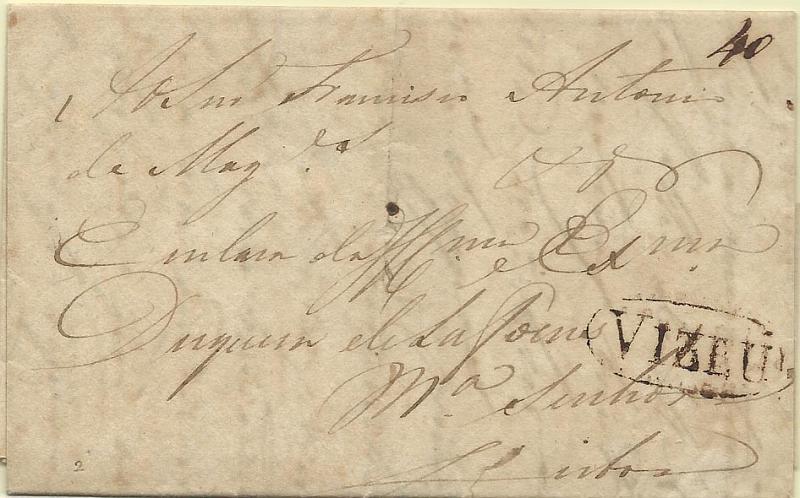 40
Ao Snr Francisco Antonio
de Mag.es
Em Caza da Illma e Exma
Duqueza de Lafoens
VIZEU
Ma Senhora
Lisboa
2